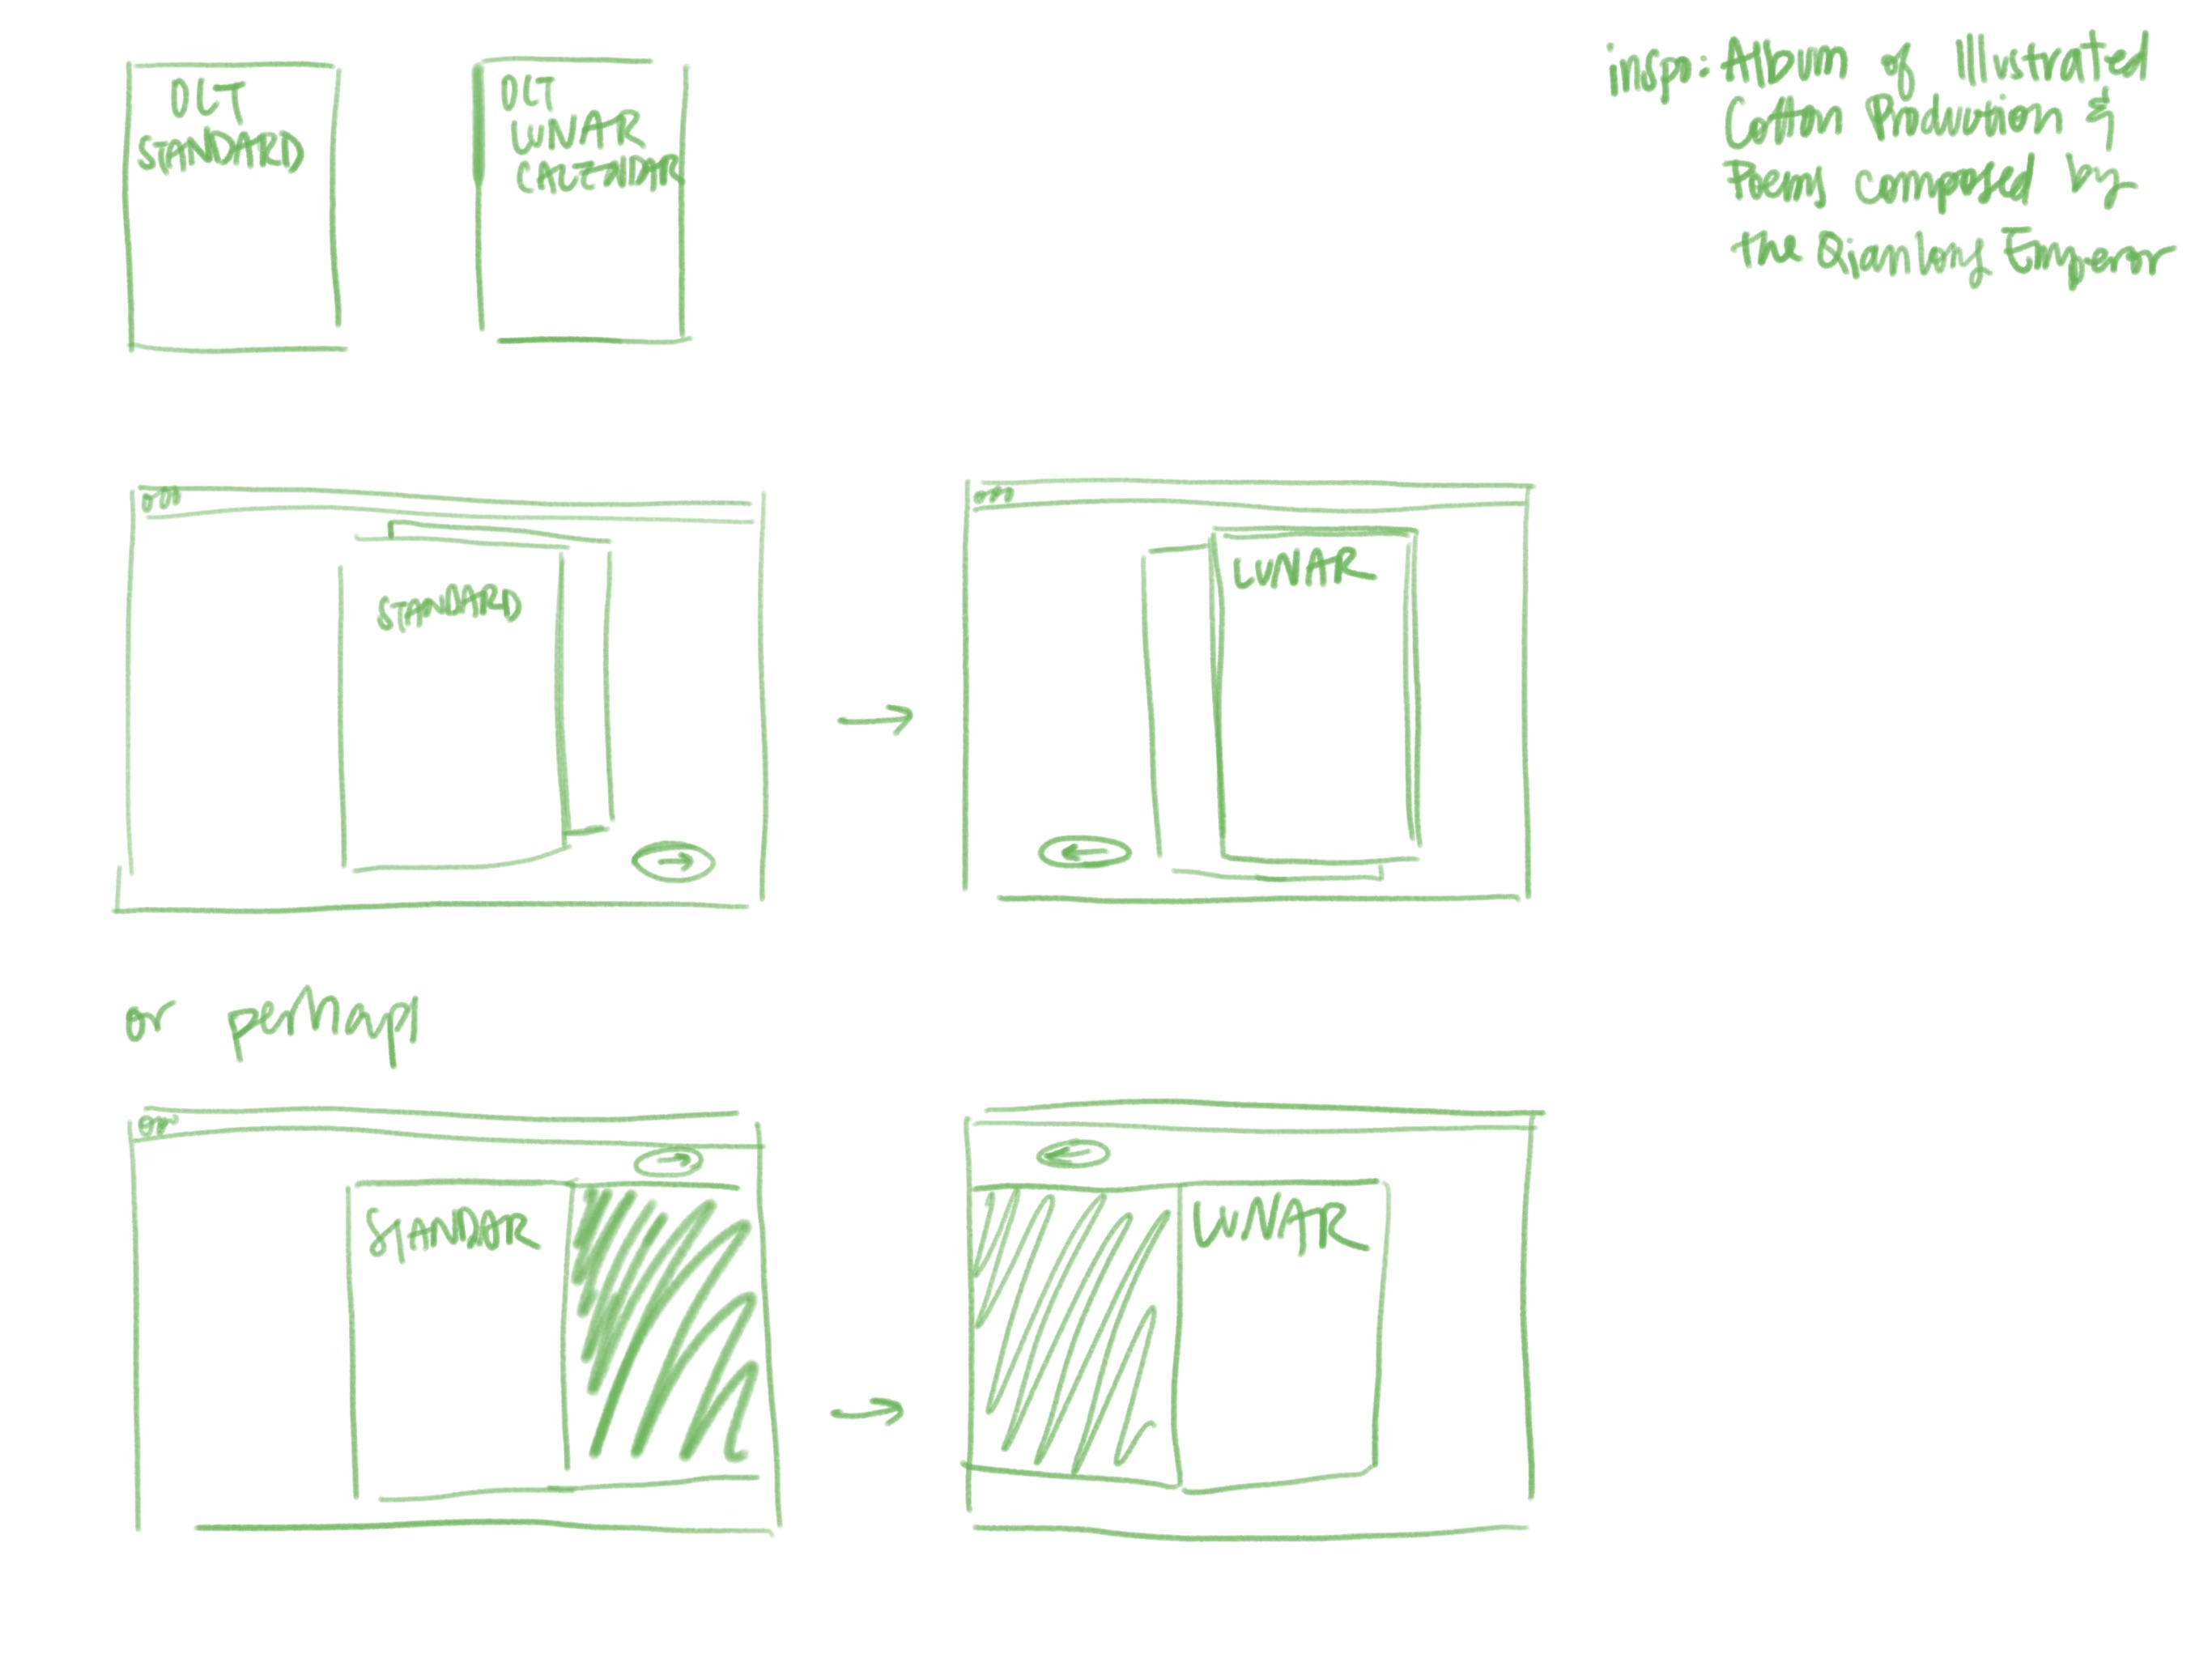 OCT
STANDARD
OCT
LUNAR
CALENDAR
inspo: Album of Illustrated
Cotton Production &
Poems composed by
the Qianlong Emperor
STANDARD
LUNAR
or perhaps
STANDAR
LUNAR